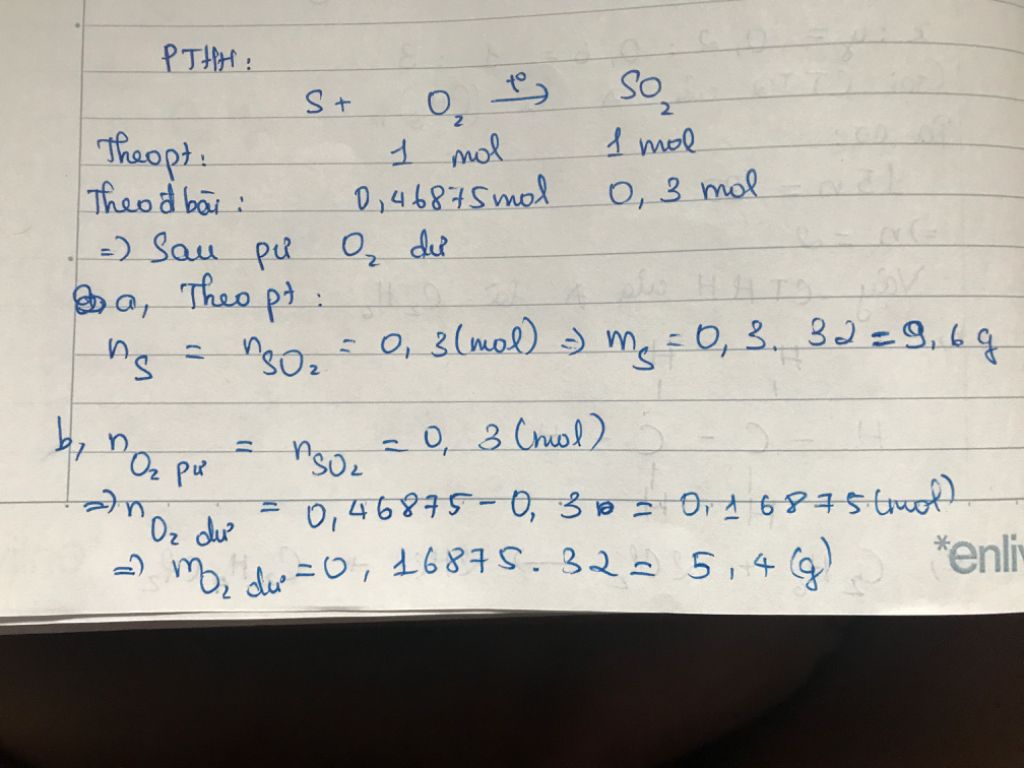 PTHH:
S + O₂ t° → SO₂
Theo pt: 1 mol 1 mol
Theo đ bài: 0,46875 mol 0,3 mol
=> Sau pư O₂ dư
a, Theo pt:
n_S = n_SO₂ = 0,3 (mol) => m_S = 0,3. 32 = 9,6 g
b, n_O₂ pư = n_SO₂ = 0,3 (mol)
=> n_O₂ dư = 0,46875 - 0,3 = 0,16875 (mol)
=> m_O₂ dư = 0,16875. 32 = 5,4 (g)
*enliv